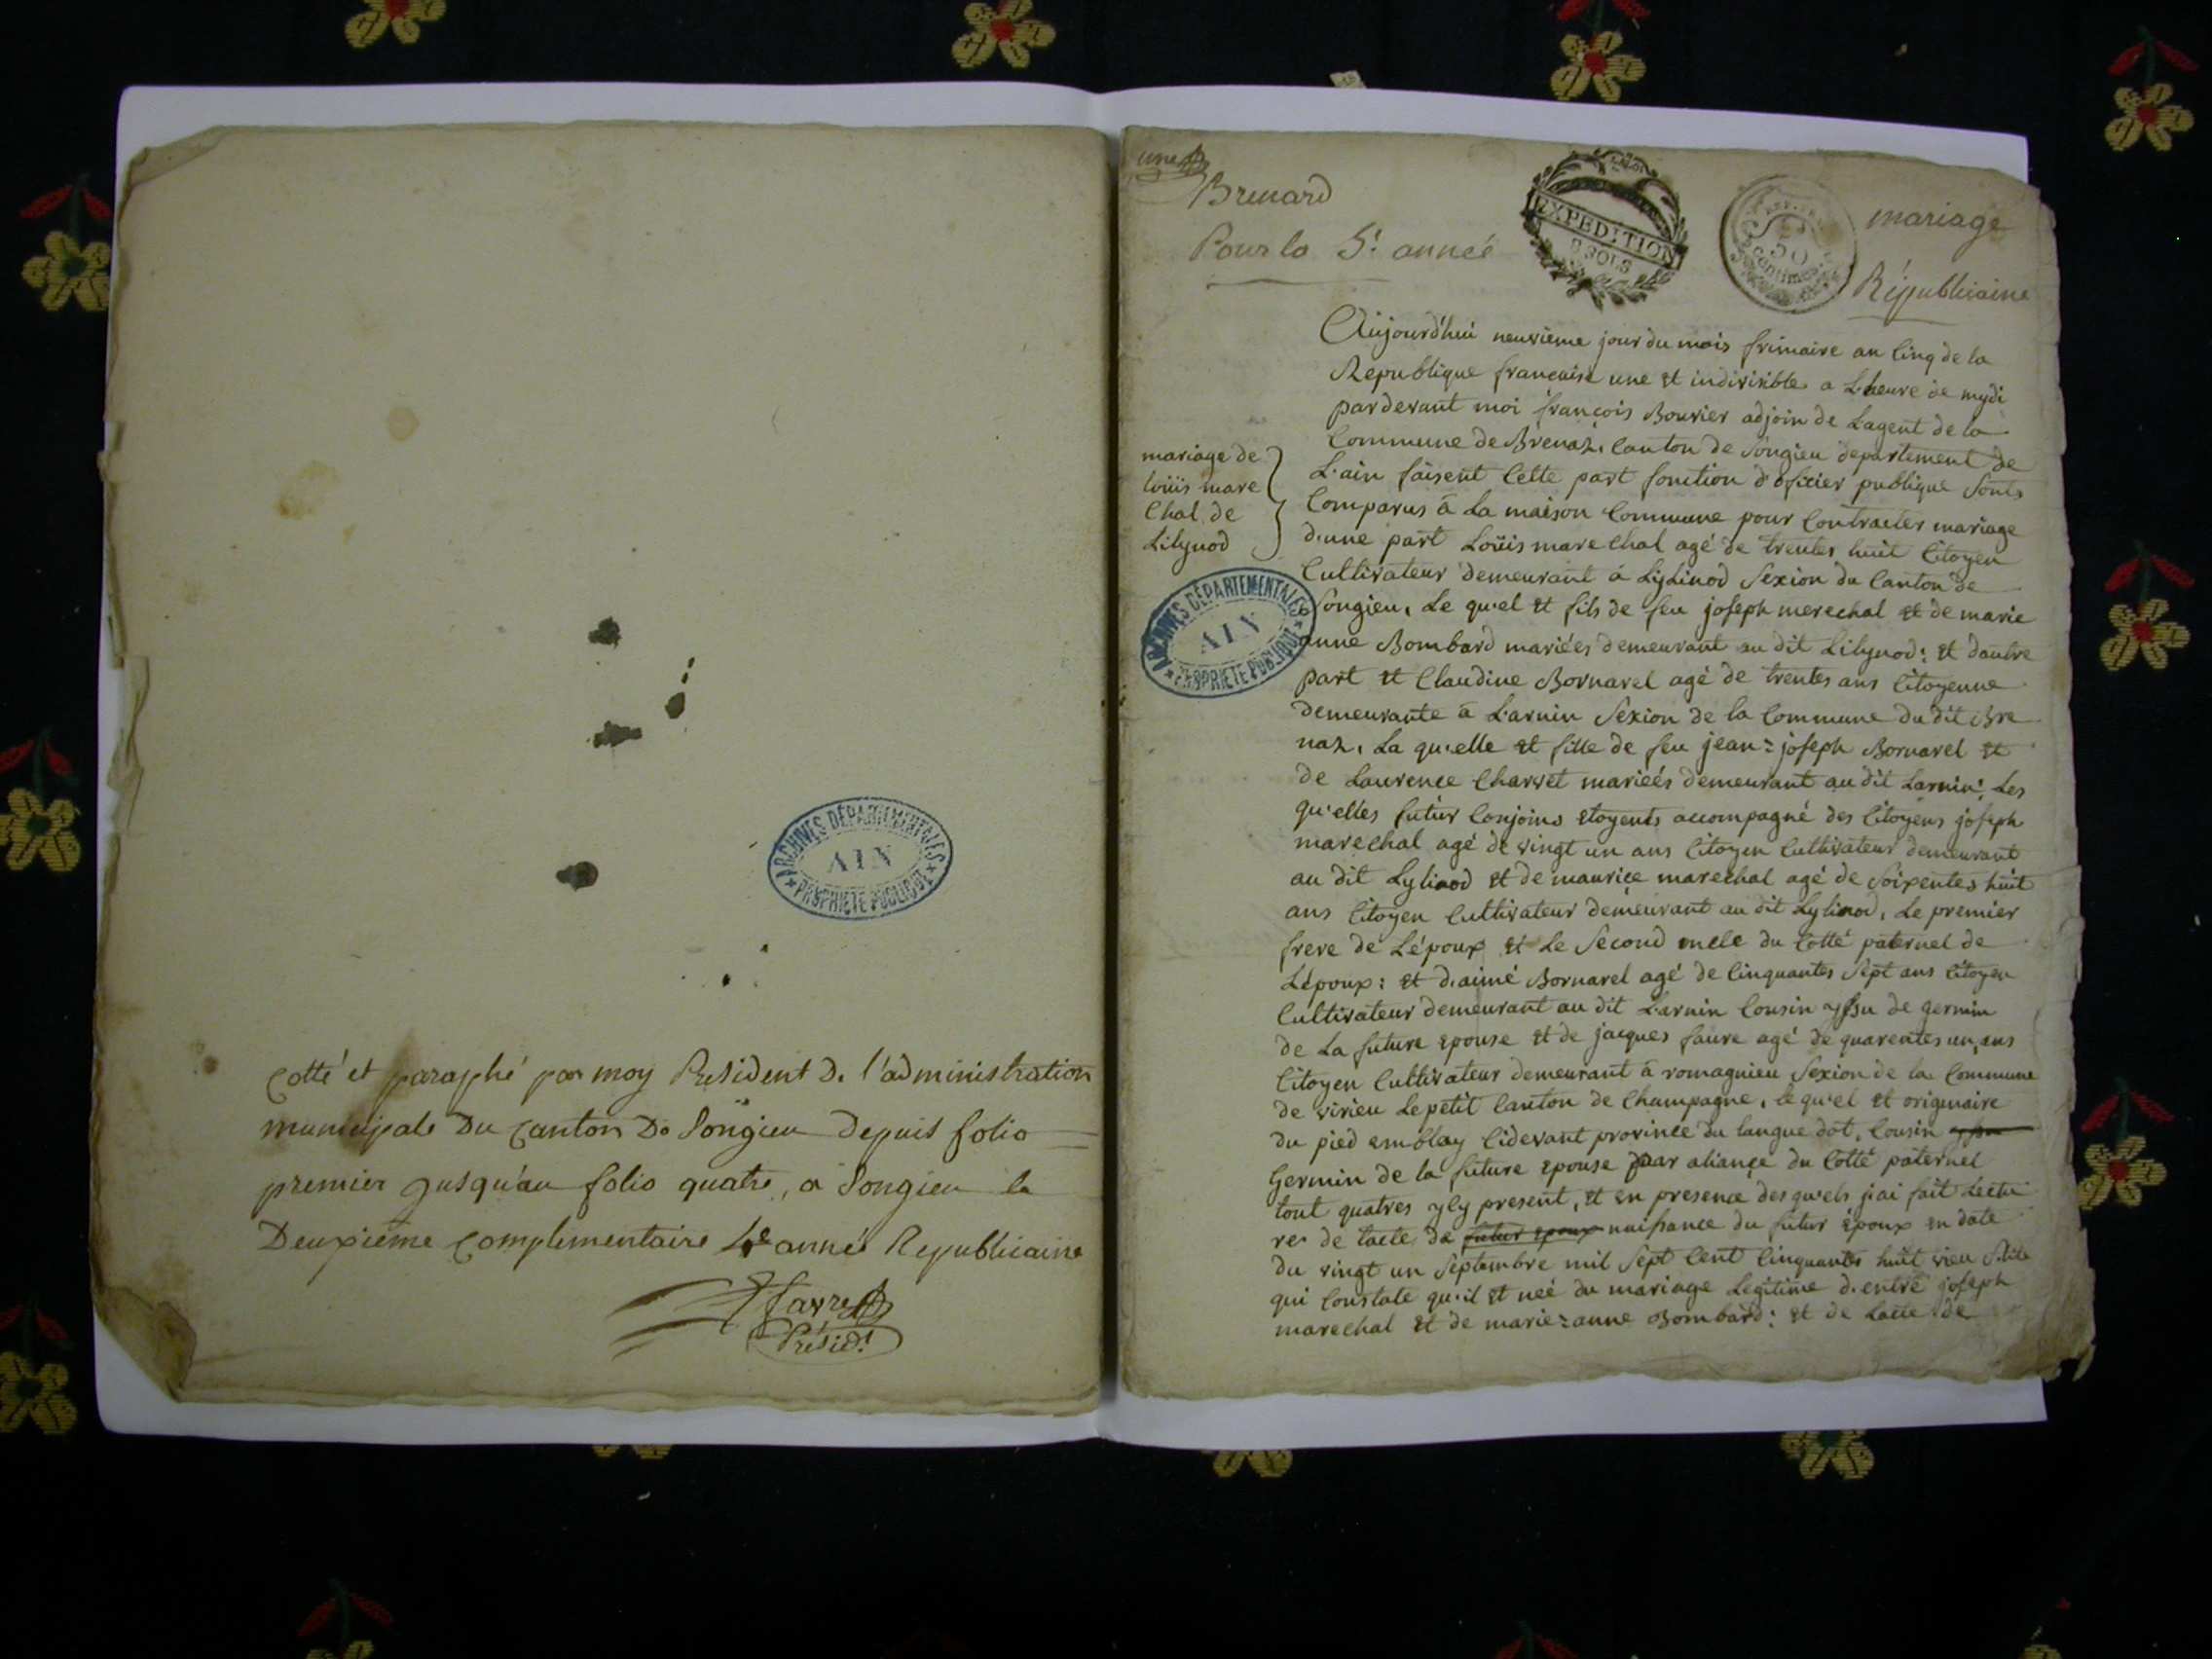 Cotté et paraphé par moy President De l'administration
municipale Du Canton De Songieu Depuis folio
premier jusqu'au folio quatre, a Songieu le
Deuxième Complementaire 4e année Republicaine
Favre
Présidt
ARCHIVES DÉPARTEMENTALES
AIN
PROPRIETE PUBLIQUE
une
Brenard
Pour la 5e année
EXPEDITION
9 SOLS
50
centimes
mariage
Républicaine
mariage de
loüis mare
Chal de
Lilignod
ARCHIVES DÉPARTEMENTALES
AIN
PROPRIETE PUBLIQUE
Aujourd'hui neuvieme jour du mois frimaire an Cinq de la
Republique francaise une et indivisible a L'heure de mydi
pardevant moi françois Bouvier adjoin de Lagent de la
Commune de Brénaz, Canton de Songieu departement de
L'ain faisent Cette part fonction d'oficier publique Sonts
Comparus à La maison Commune pour Contracter mariage
d'une part Loüis marechal agé de trentes huit Citoyen
Cultivateur demeurant à Lylinod Sexion du Canton de
Songieu, Le qu'el et fils de feu joseph merechal et de marie
anne Bombard mariées demeurant au dit Lilignod: et dautre
part et Claudine Bornarel agé de trentes ans Citoyenne
demeurante à L'arnin Sexion de la Commune du dit Bre
naz, La qu'elle et fille de feu jean=joseph Bornarel et
de Laurence Charvet mariées demeurant au dit Larnin, Les
qu'elles futur Conjoins Etoyents accompagné des Citoyens joseph
marechal agé de vingt un ans Citoyen Cultivateur demeurant
au dit Lylinod et de maurice marechal agé de Soixentes huit
ans Citoyen Cultivateur demeurant au dit Lylinod, Le premier
frere de Lépoux et Le Second oncle du Cotté paternel de
Lépoux: et d'aimé Bornarel agé de Cinquantes Sept ans Citoyen
Cultivateur demeurant au dit L'arnin Cousin yssu de germin
de La future epouse et de jacques faure agé de quarentes un ans
Citoyen Cultivateur demeurant à romagnieu Sexion de la Commune
de virieu Lepetit Canton de Champagne, le qu'el et originaire
du pied emblay Cidevant province du langue dot, Cousin yssu
Germin de la future epouse par aliance du Cotté paternel
tout quatres yly present, et en presence des qu'els j'ai fait Lectu
re de lacte de futur epoux naissance du futur époux en date
du vingt un Septembre mil Sept Cent Cinquantes huit vieu Stile
qui Constate qu'il et née du mariage Legitime d'entre joseph
marechal et de marie=anne Bombard: et de Lacte de